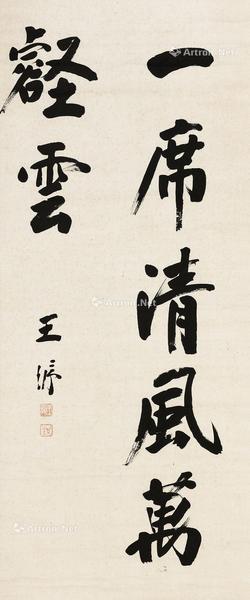 一席清風萬
壑雲
王
Artron.Net
Artron.Net
Artron.Net
Artron.Net